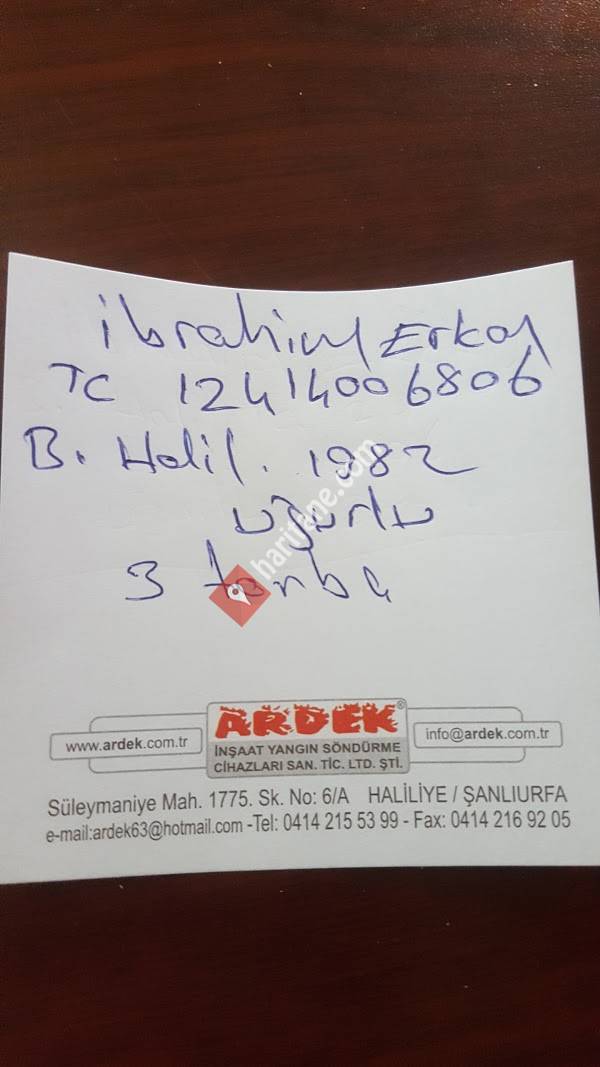 ibrahim Erkol
TC 12414006806
B. Halil. 1982
uğurlu
3 torba
harifane.com
ARDEK®
İNŞAAT YANGIN SÖNDÜRME
CİHAZLARI SAN. TİC. LTD. ŞTİ.
www.ardek.com.tr
info@ardek.com.tr
Süleymaniye Mah. 1775. Sk. No: 6/A HALİLİYE / ŞANLIURFA
e-mail:ardek63@hotmail.com -Tel: 0414 215 53 99 - Fax: 0414 216 92 05